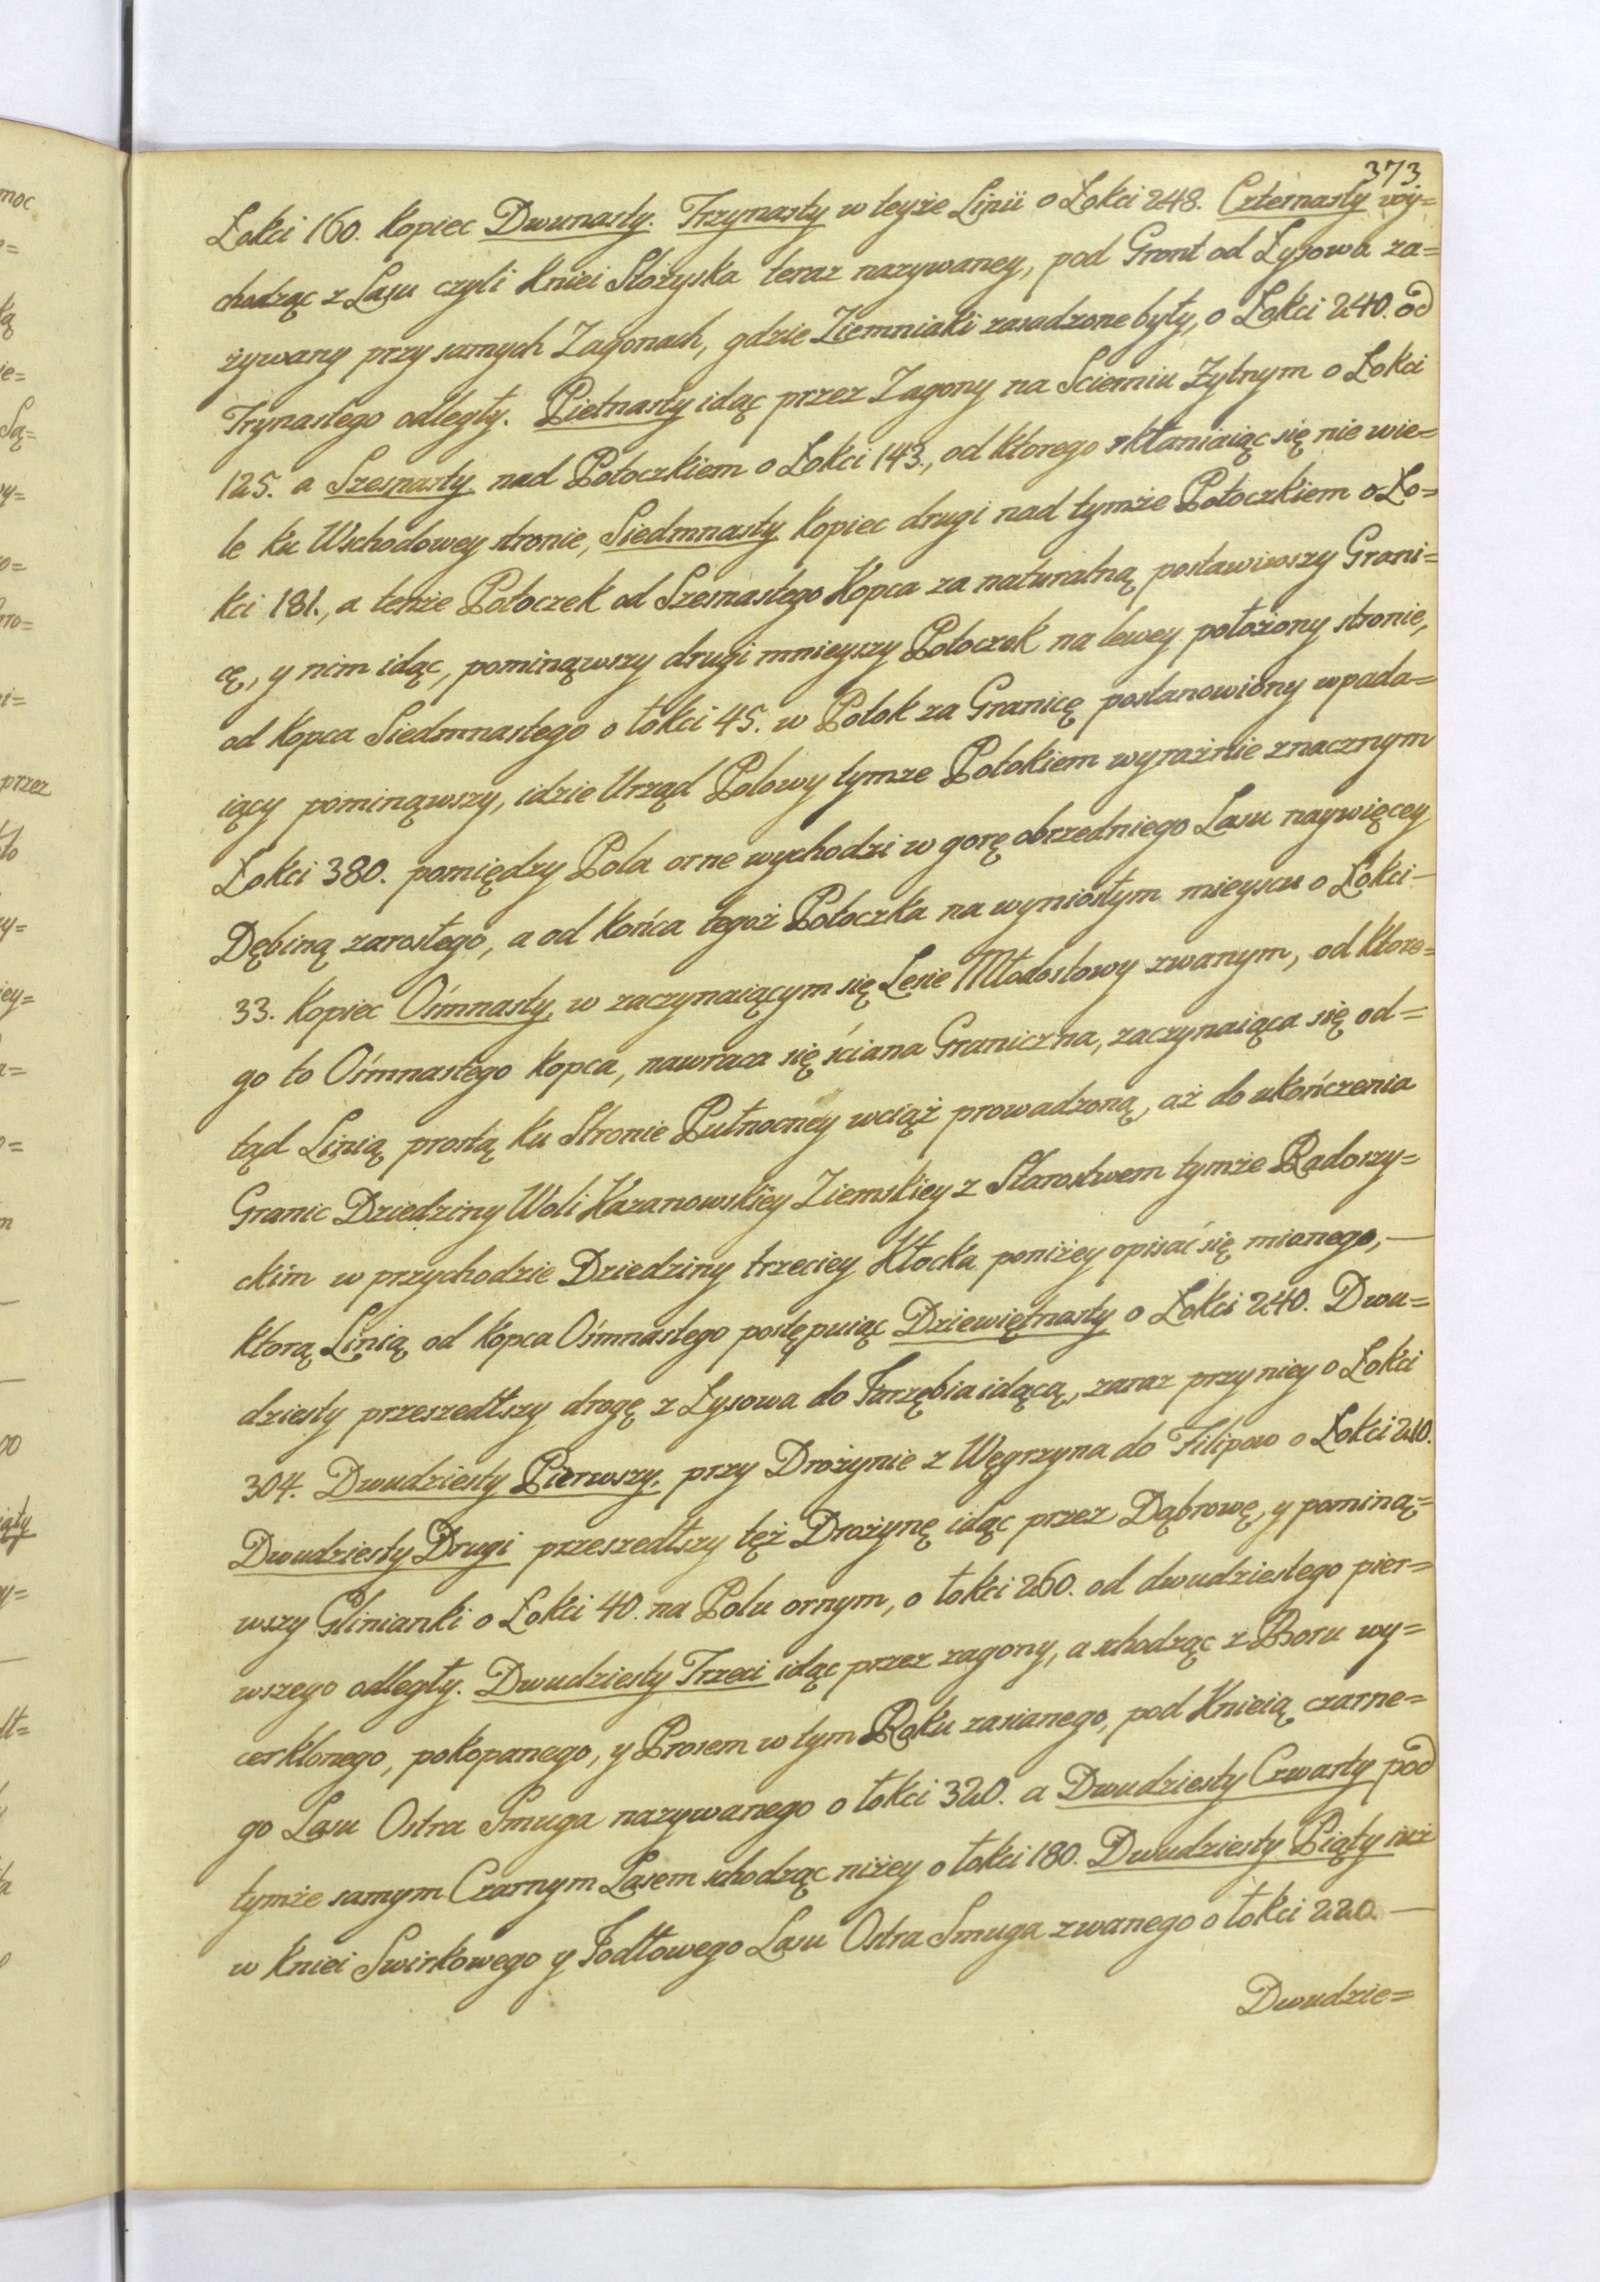 373
Łokci 160. kopiec Dwunasty. Trzynasty w teyże Linii o Łokci 248. Czternasty wy=
chodząc z Lasu czyli Kniei Stożyska teraz nazywaney, pod Gront od Łysowa za=
żywany przy samych Zagonach, gdzie Ziemniaki zasadzone były, o Łokci 240. od
Trynastego odległy. Pietnasty idąc przez Zagony na Scierniu Żytnym o Łokci
125. a Szesnasty nad Potoczkiem o Łokci 143., od ktorego skłaniaiąc się nie wie=
le ku Wschodowey stronie, Siedmnasty kopiec drugi nad tymże Potoczkiem o Ło=
kci 181., a tenże Potoczek od Szesnastego Kopca za naturalną postawiwszy Grani=
cę, y nim idąc, pominąwszy drugi mnieyszy Potoczek na lewey położony stronie,
od kopca Siedmnastego o łokci 45. w Potok za Granicę postanowiony wpada=
iący pominąwszy, idzie Urząd Polowy tymze Potokiem wyraźnie znacznym
Łokci 380. pomiędzy Pola orne wychodzi w gorę obrzedniego Lasu naywięcey
Dębiną zarosłego, a od końca tegoż Potoczka na wyniosłym mieyscu o Łokci —
33. kopiec Ośmnasty, w zaczynaiącym się Lesie Młodosłowy zwanym, od ktore=
go to Ośmnastego kopca, nawraca się ściana Graniczna, zaczynaiąca się od=
tąd Linią prostą ku Stronie Pułnocney wciąż prowadzoną, aż do ukończenia
Granic Dziedziny Woli Kazanowskiey Ziemskiey z Starostwem tymże Radoszy=
ckim w przychodzie Dziedziny trzeciey Kłocka poniżey opisać się mianego, —
ktorą Linią od kopca Ośmnastego postępuiąc Dziewiętnasty o Łokci 240. Dwu=
dziesty przeszedłszy drogę z Łysowa do Jarzębia idącą, zaraz przy niey o Łokci
304. Dwudziesty Pierwszy, przy Drożynie z Węgrzyna do Filipow o Łokci 210.
Dwudziesty Drugi przeszedłszy tęż Drożynę idąc przez Dąbrowę, y pominą=
wszy Glinianki o Łokci 40. na Polu ornym, o łokci 260. od dwudziestego pier=
wszego odległy. Dwudziesty Trzeci idąc przez zagony, a schodząc z Boru wy=
cerklonego, pokopanego, y Prosem w tym Roku zasianego, pod Knieią czarne=
go Lasu Ostra Smuga nazywanego o łokci 320. a Dwudziesty Czwarty pod
tymże samym Czarnym Lasem schodząc niżey o łokci 180. Dwudziesty Piąty już
w Kniei Swirkowego y Jodłowego Lasu Ostra Smuga zwanego o łokci 220. —
Dwudzie=